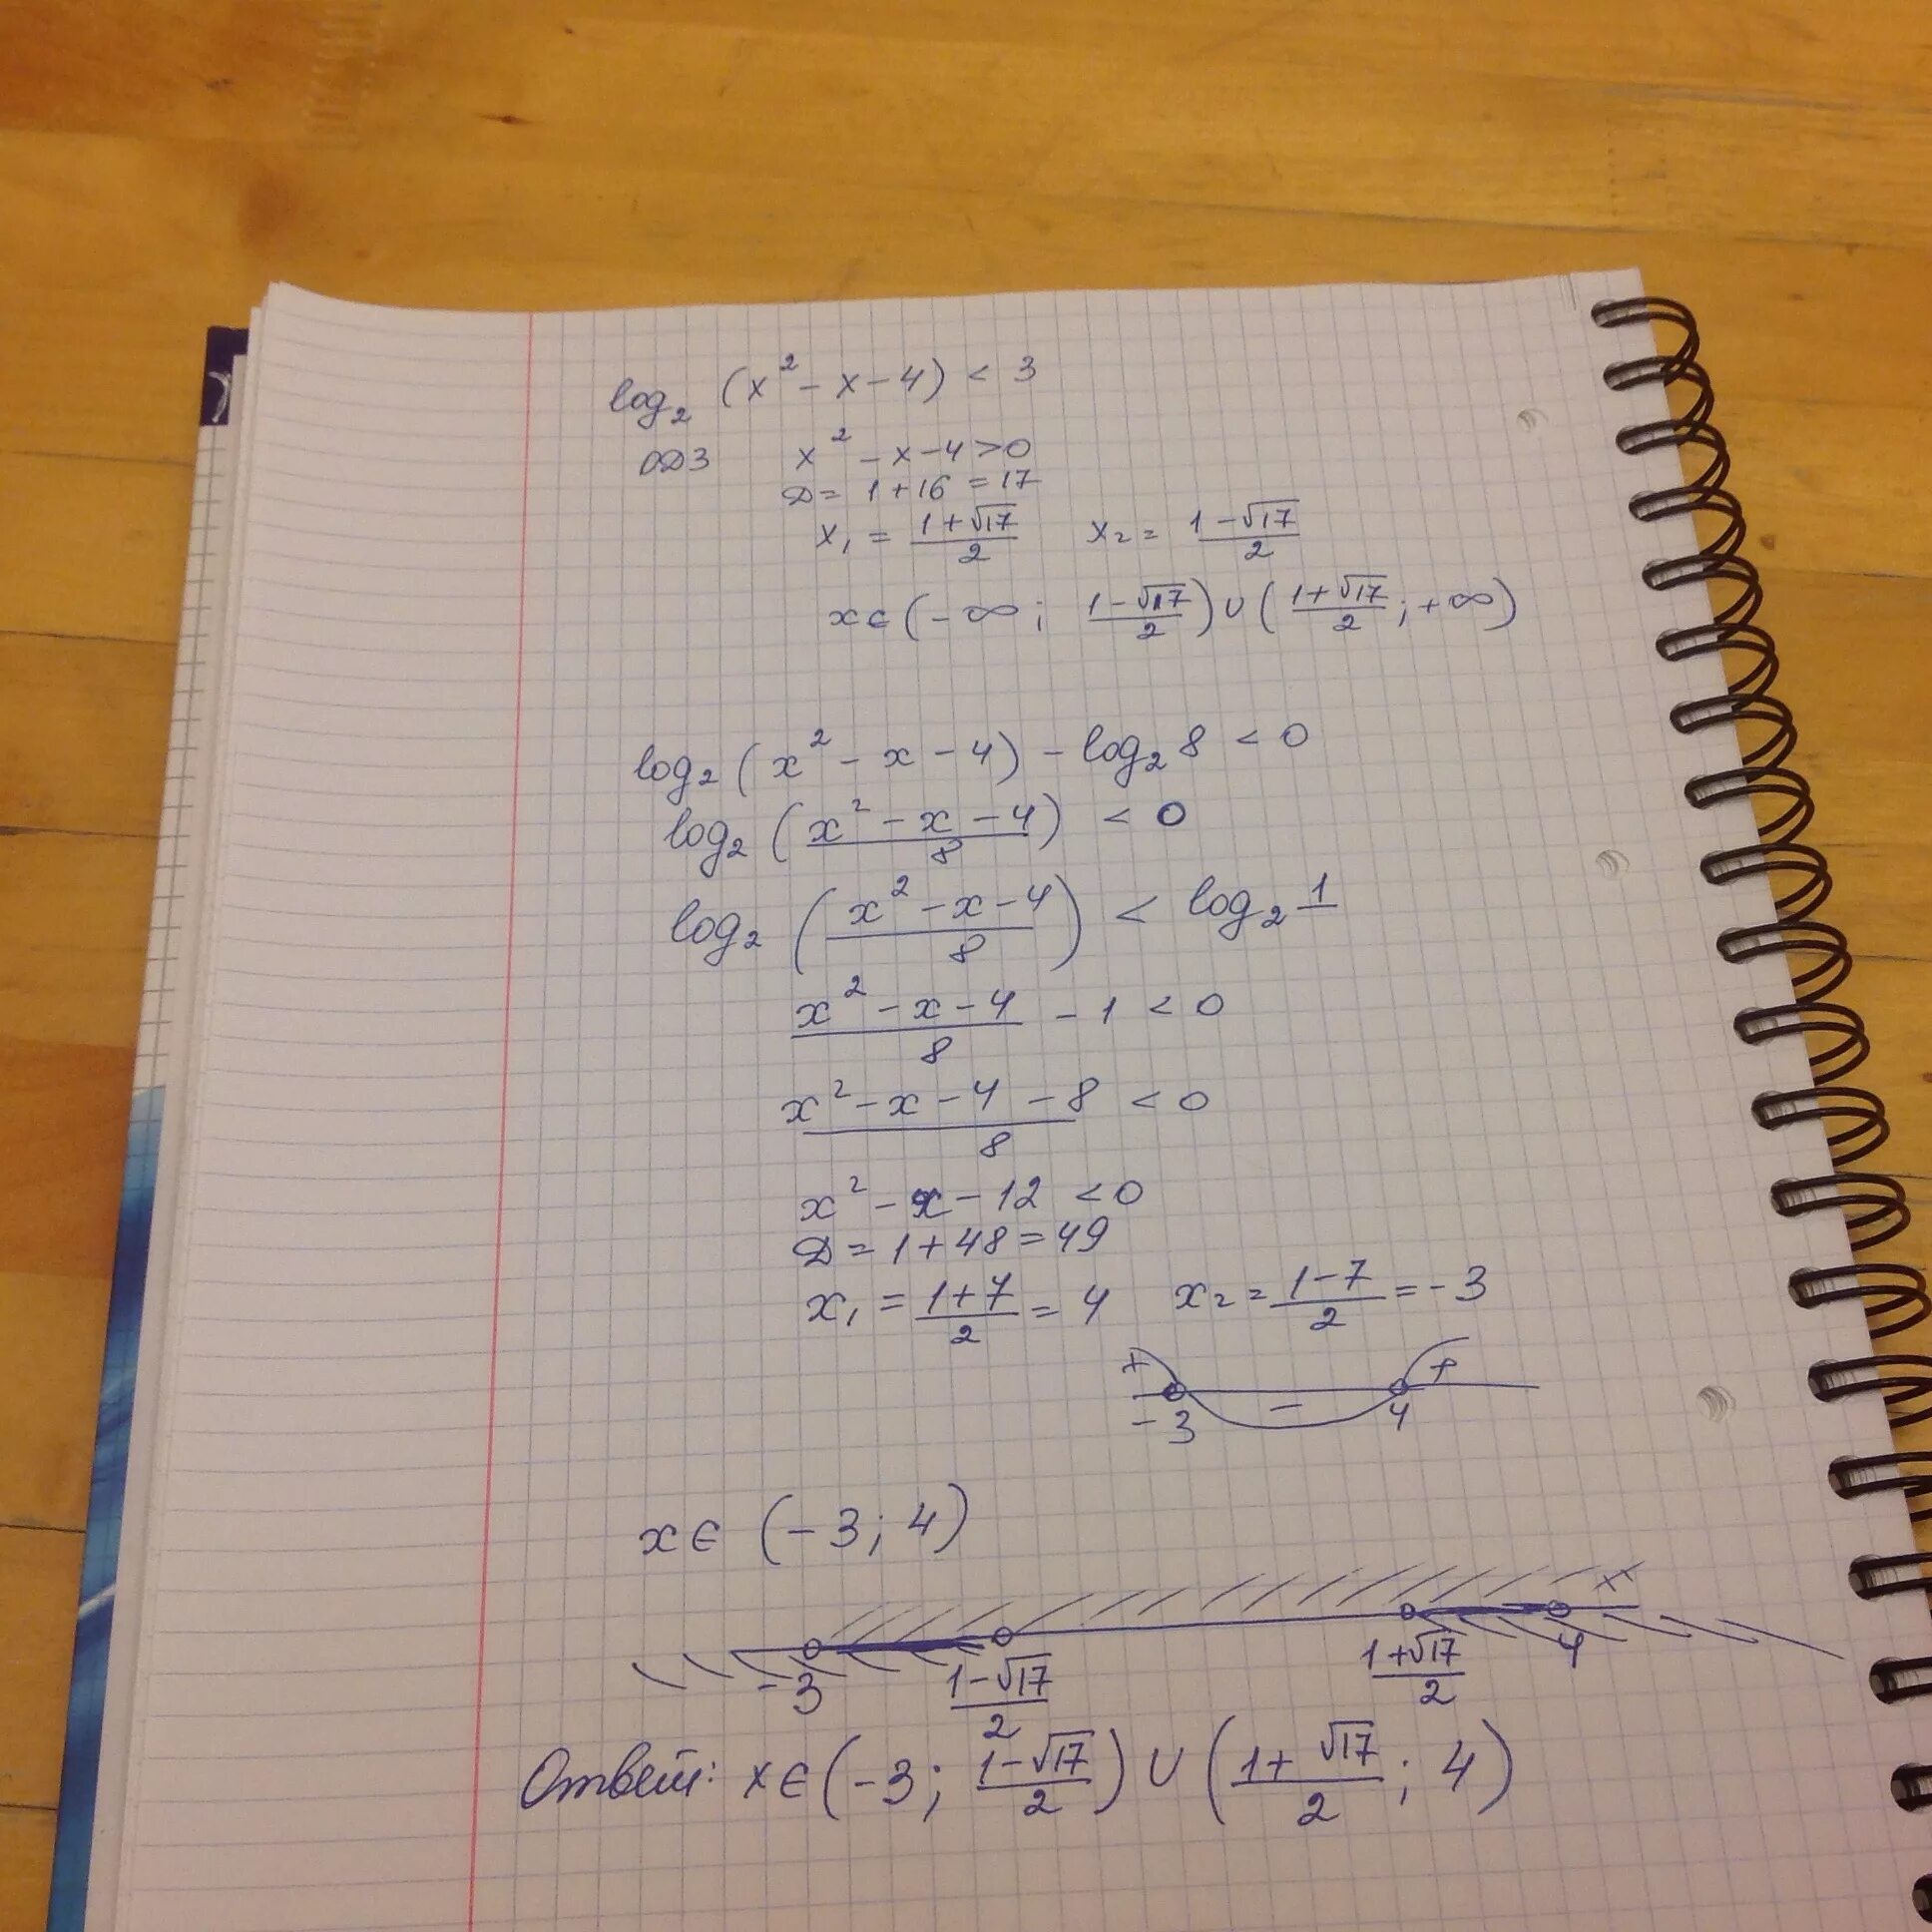 log₂ (x² - x - 4) < 3
ОДЗ x² - x - 4 > 0
D = 1 + 16 = 17
x₁ = (1 + √17)/2 x₂ = (1 - √17)/2
x ∈ (-∞; (1 - √17)/2) ∪ ((1 + √17)/2; +∞)
log₂ (x² - x - 4) - log₂ 8 < 0
log₂ ((x² - x - 4)/8) < 0
log₂ ((x² - x - 4)/8) < log₂ 1
(x² - x - 4)/8 - 1 < 0
(x² - x - 4 - 8)/8 < 0
x² - x - 12 < 0
D = 1 + 48 = 49
x₁ = (1 + 7)/2 = 4 x₂ = (1 - 7)/2 = -3
+ - +
-3 4
x ∈ (-3; 4)
-3 (1 - √17)/2 (1 + √17)/2 4
Ответ: x ∈ (-3; (1 - √17)/2) ∪ ((1 + √17)/2; 4)